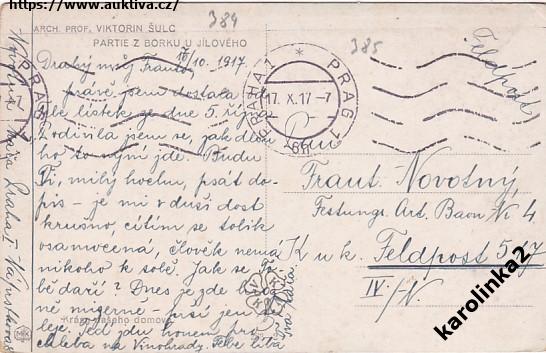 https://www.auktiva.cz/
384
ARCH. PROF. VIKTORIN ŠULC
PARTIE Z BORKU U JÍLOVÉHO
385
Feldpost
Drahý můj Franto, 17/10. 1917.
právě jsem dostala od
Tebe lístek ze dne 5. října
jsem se, jak dlou
ho to nyní jde. Budu
Ti, milý hochu, psát do-
pis - je mi v duši dost
krušno, cítím se tolik
osamocená, člověk nemá
nikoho k sobě. Jak se Ti
bě daří? Dnes je zde
mizerně - prší jen se
leje. Teď jdu honem pro
chleba na Vinohrady. Tebe líbá
PRAHA 1 * PRAG 1
17. X. 17 - 7
Pan
Frant. Novotný
Festungs. Art. Baon No 4
K u k. Feldpost 517
IV./
Krása našeho domova
Praha I
karolinka2